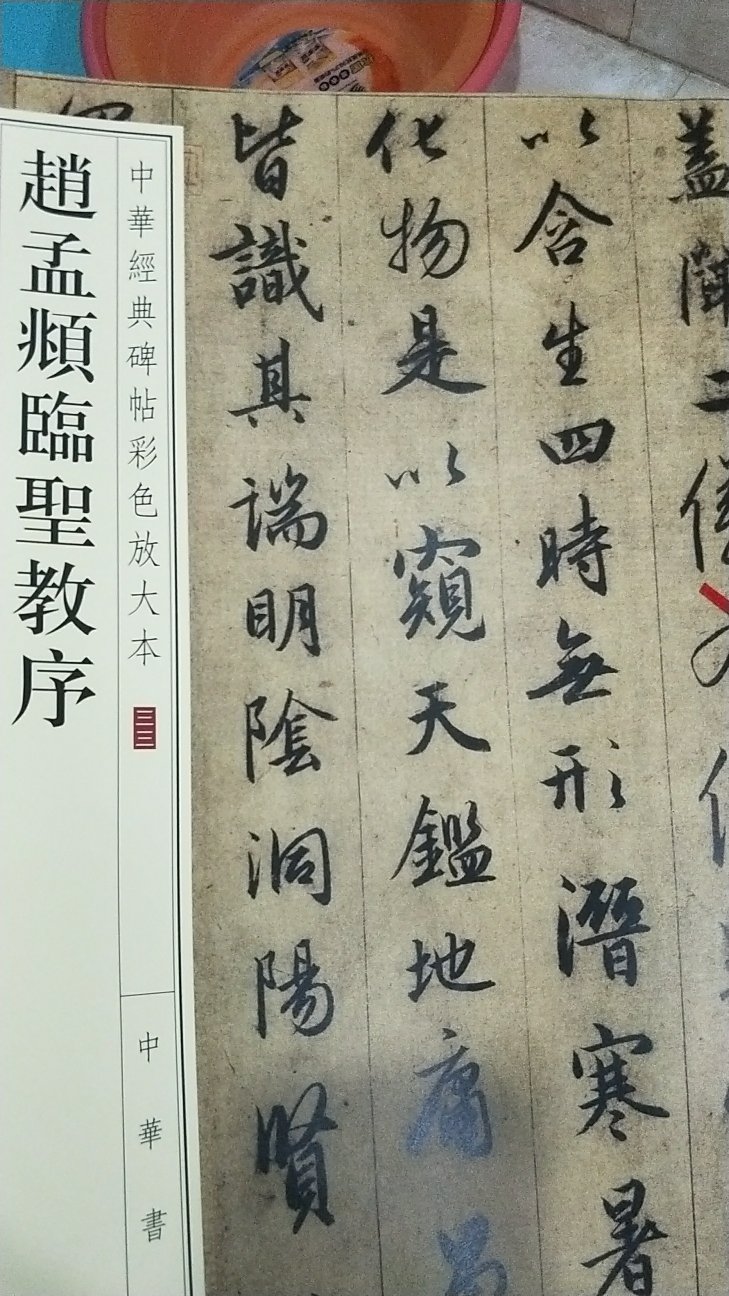 蓋聞二儀
以含生四時無形潛寒暑
化物是以窺天鑑地庸
皆識其端明陰洞陽賢
中華經典碑帖彩色放大本
三三
中華書
趙孟頫臨聖教序